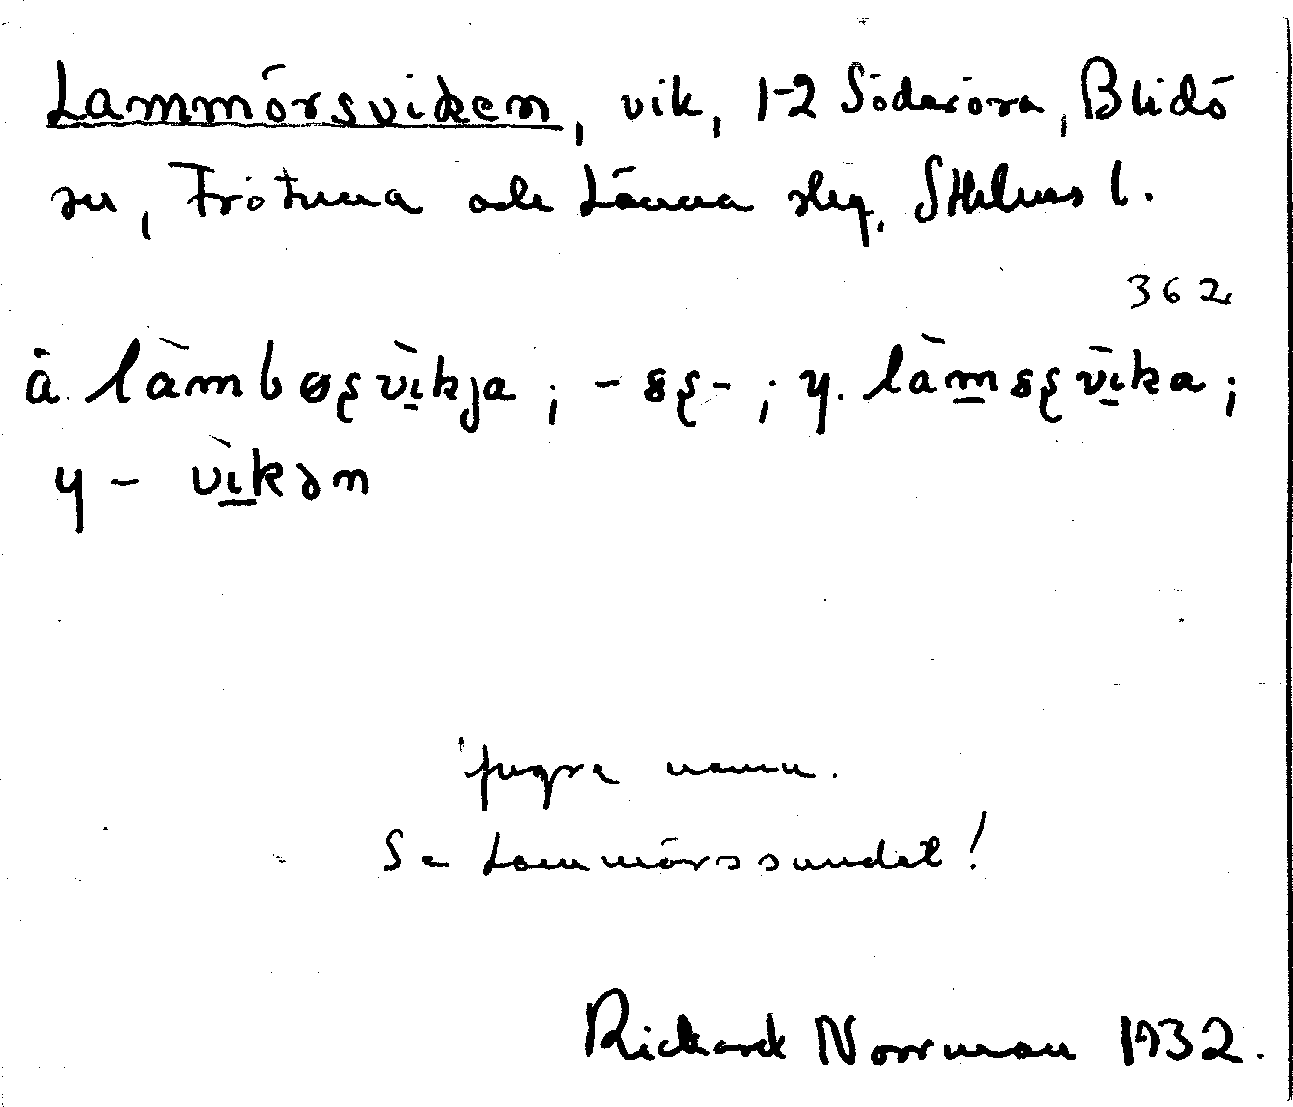 Lammörsviken, vik, 1-2 Söderöra, Blidö
sn, Frötuna och Länna skg, Sthlms l.
362
å làmbøʂvìkja ; -ɞʂ- ; y. làmɞʂvìka ;
y - vìkən
yngre namn.
Se Lammörssundet!
Rickard Norrman 1932.